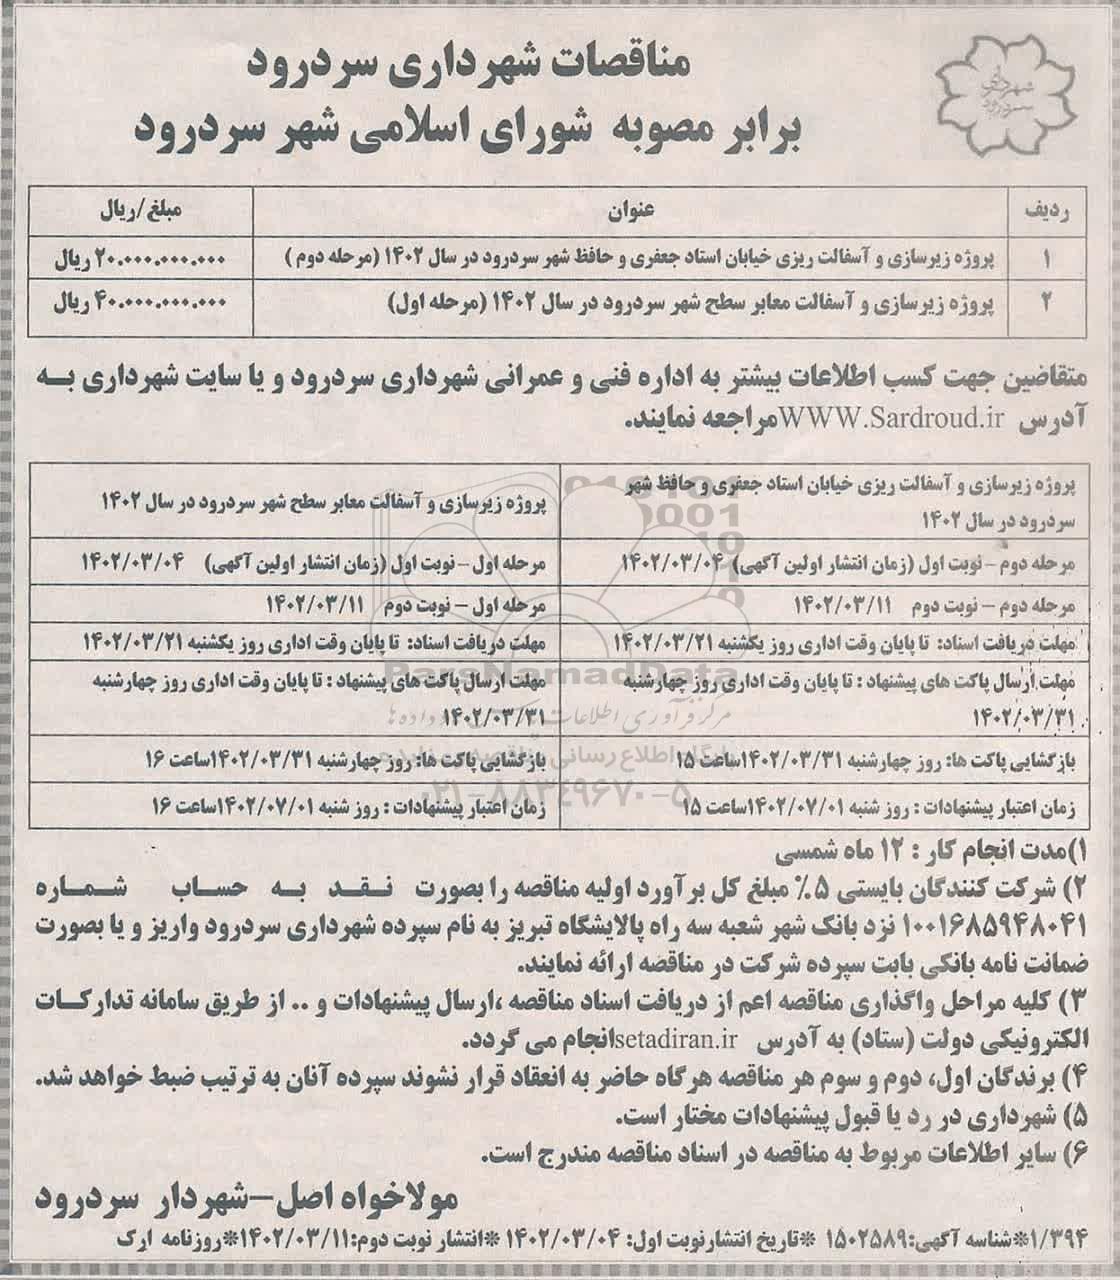 شهرداری
سردرود
مناقصات شهرداری سردرود
برابر مصوبه شورای اسلامی شهر سردرود
ردیف عنوان مبلغ/ریال
۱ پروژه زیرسازی و آسفالت ریزی خیابان استاد جعفری و حافظ شهر سردرود در سال ۱۴۰۲ (مرحله دوم ) ۲۰.۰۰۰.۰۰۰.۰۰۰ ریال
۲ پروژه زیرسازی و آسفالت معابر سطح شهر سردرود در سال ۱۴۰۲ (مرحله اول) ۴۰.۰۰۰.۰۰۰.۰۰۰ ریال
متقاضین جهت کسب اطلاعات بیشتر به اداره فنی و عمرانی شهرداری سردرود و یا سایت شهرداری بـه
آدرس WWW.Sardroud.ir مراجعه نمایند.
پروژه زیرسازی و آسفالت ریزی خیابان استاد جعفری و حافظ شهر
سردرود در سال ۱۴۰۲
پروژه زیرسازی و آسفالت معابر سطح شهر سردرود در سال ۱۴۰۲
مرحله دوم – نوبت اول (زمان انتشار اولین آگهی) ۱۴۰۲/۰۳/۰۴
مرحله اول – نوبت اول (زمان انتشار اولین آگهی) ۱۴۰۲/۰۳/۰۴
مرحله دوم – نوبت دوم ۱۴۰۲/۰۳/۱۱
مرحله اول – نوبت دوم ۱۴۰۲/۰۳/۱۱
مهلت دریافت اسناد: تا پایان وقت اداری روز یکشنبه ۱۴۰۲/۰۳/۲۱
مهلت دریافت اسناد: تا پایان وقت اداری روز یکشنبه ۱۴۰۲/۰۳/۲۱
مهلت ارسال پاکت های پیشنهاد : تا پایان وقت اداری روز چهارشنبه
۱۴۰۲/۰۳/۳۱
مهلت ارسال پاکت های پیشنهاد : تا پایان وقت اداری روز چهارشنبه
۱۴۰۲/۰۳/۳۱
بازگشایی پاکت ها: روز چهارشنبه ۱۴۰۲/۰۳/۳۱ساعت ۱۵
بازگشایی پاکت ها: روز چهارشنبه ۱۴۰۲/۰۳/۳۱ساعت ۱۶
زمان اعتبار پیشنهادات : روز شنبه ۱۴۰۲/۰۷/۰۱ساعت ۱۵
زمان اعتبار پیشنهادات : روز شنبه ۱۴۰۲/۰۷/۰۱ساعت ۱۶
ParsNamadData
مرکز فرآوری اطلاعات
۰۲۱-۸۸۳۴۹۶۷۰-۵
۱)مدت انجام کار : ۱۲ ماه شمسی
۲) شرکت کنندگان بایستی ۵٪ مبلغ کل برآورد اولیه مناقصه را بصورت نـقـد بـه حـساب شـمـاره
۱۰۰۱۶۸۵۹۴۸۰۴۱ نزد بانک شهر شعبه سه راه پالایشگاه تبریز به نام سپرده شهرداری سردرود واریز و یا بصورت
ضمانت نامه بانکی بابت سپرده شرکت در مناقصه ارائه نمایند.
۳) کلیه مراحل واگذاری مناقصه اعم از دریافت اسناد مناقصه ،ارسال پیشنهادات و .. از طریق سامانه تدارکـات
الکترونیکی دولت (ستاد) به آدرس setadiran.ir انجام می گردد.
۴) برندگان اول، دوم و سوم هر مناقصه هرگاه حاضر به انعقاد قرار نشوند سپرده آنان به ترتیب ضبط خواهد شد.
۵) شهرداری در رد یا قبول پیشنهادات مختار است.
۶) سایر اطلاعات مربوط به مناقصه در اسناد مناقصه مندرج است.
مولاخواه اصل–شهردار سردرود
۱/۳۹۴*شناسه آگهی:۱۵۰۲۵۸۹ *تاریخ انتشارنوبت اول: ۱۴۰۲/۰۳/۰۴ *انتشار نوبت دوم:۱۴۰۲/۰۳/۱۱*روزنامه ارک